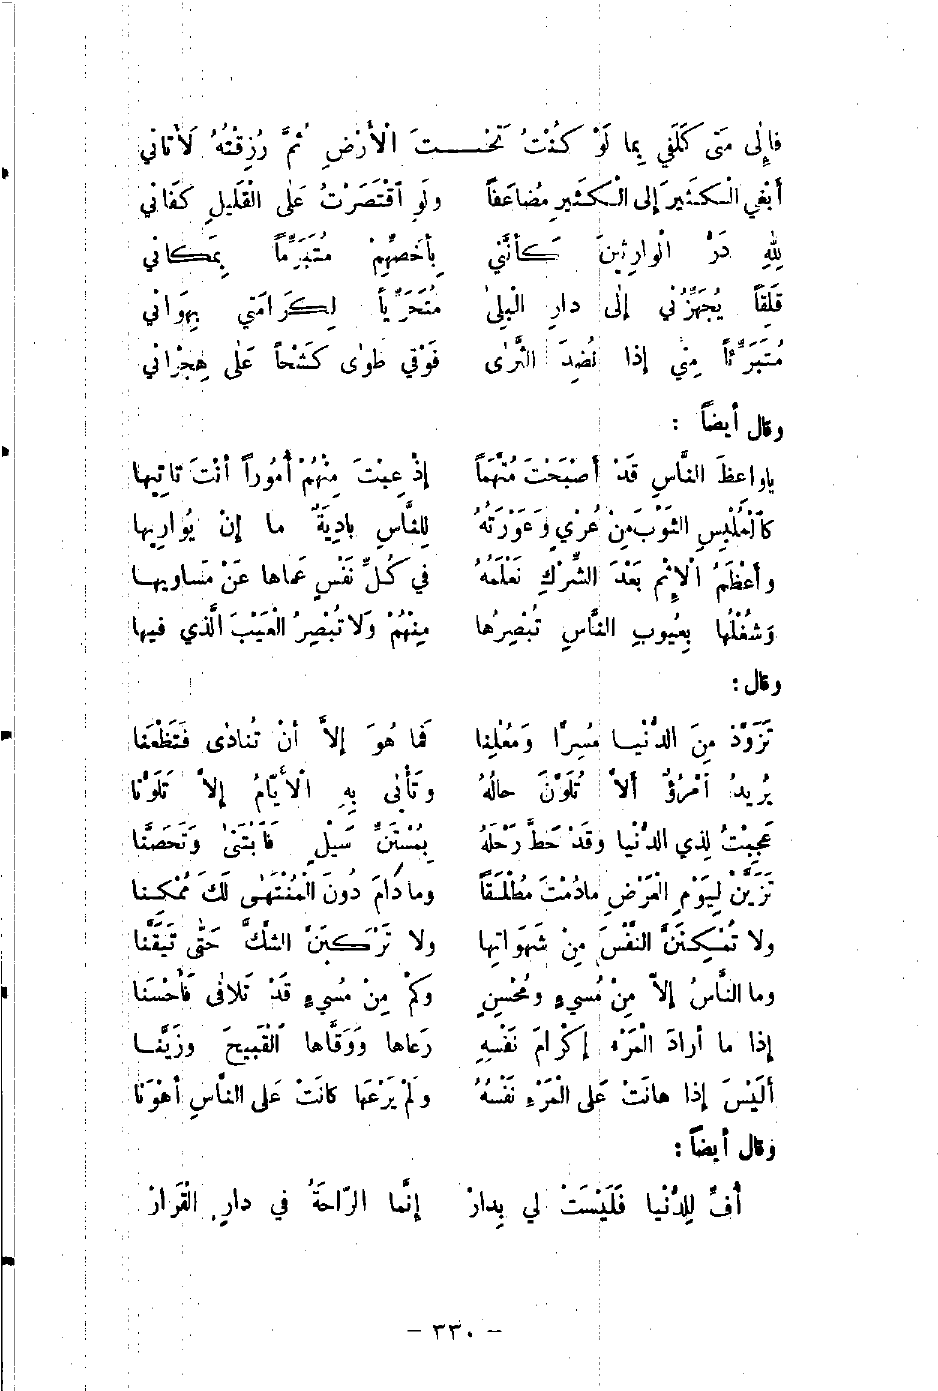 فَإِلى مَتى كَلَفي بِما لَوْ كُنْتُ تَحْتَ الْأَرْضِ ثُمَّ رُزِقْتُهُ لَأَتاني
أَبْغي الْكَثيرَ إِلى الْكَثيرِ مُضاعَفاً وَلَوِ اقْتَصَرْتُ عَلى القَليلِ كَفاني
لِلهِ دَرُّ الْوارِثينَ كَأَنَّني بِأَخَصِّهِمْ مُتَبَرِّماً بِمَكاني
قَلِقاً يُجَهِّزُني إِلى دارِ الْبِلى مُتَحَرِّياً لِكَرامَتي بِهَواني
مُتَبَرِّئاً مِنّي إِذا نُضِدَ الثَّرى فَوْقي طَوى كَشْحاً عَلى هِجْراني
وقال أيضاً :
ياواعِظَ النَّاسِ قَدْ أَصْبَحْتَ مُتَّهَماً إِذْ عِبْتَ مِنْهُمْ أُمُوراً أَنْتَ تَاتِيها
كَالْمُلْبِسِ الثَّوْبَ مِنْ عُرْيٍ وَعَوْرَتُهُ لِلنَّاسِ بادِيَةٌ ما إِنْ يُوارِيها
وَأَعْظَمُ الْإِثْمِ بَعْدَ الشِّرْكِ نَعْلَمُهُ في كُلِّ نَفْسٍ عَماها عَنْ مَساويها
وَشُغْلُها بِعُيوبِ النَّاسِ تُبْصِرُها مِنْهُمْ وَلا تُبْصِرُ الْعَيْبَ الَّذي فيها
وقال :
تَزَوَّدْ مِنَ الدُّنْيا مُسِرّاً وَمُعْلِنا فَما هُوَ إِلاَّ أَنْ تُنادى فَتَظْعَنا
يُرِيدُ امْرُؤٌ أَلاَّ تُلَوَّنَ حالُهُ وَتَأْبى بِهِ الْأَيَّامُ إِلاَّ تَلَوُّنا
عَجِبْتُ لِذي الدُّنْيا وَقَدْ حَطَّ رَحْلَهُ بِمُسْتَنِّ سَيْلٍ فَابْتَنى وَتَحَصَّنا
تَزَيَّنْ لِيَوْمِ العَرْضِ مادُمْتَ مُطْلَقاً وَما دَامَ دُونَ الْمُنْتَهى لَكَ مُمْكِنا
ولا تُمْكِنَنَّ النَّفْسَ مِنْ شَهَوَاتِها ولا تَرْكَبَنَّ الشَّكَّ حَتَّى تَيَقَّنا
وما النَّاسُ إِلاَّ مِنْ مُسيءٍ ومُحْسِنٍ وَكَمْ مِنْ مُسيءٍ قَدْ تَلافى فَأَحْسَنا
إِذا ما أَرادَ الْمَرْءُ إِكْرامَ نَفْسِهِ رَعاها وَوَقَّاها القَبيحَ وزَيَّنا
أَلَيْسَ إِذا هانَتْ عَلى الْمَرْءِ نَفْسُهُ وَلَمْ يَرْعَها كانَتْ عَلى النَّاسِ أَهْوَنا
وقال أيضاً :
أُفِّ لِلدُّنْيا فَلَيْسَتْ لي بِدارْ إِنَّما الرّاحَةُ في دارِ القَرارْ
– ٣٣٠ –